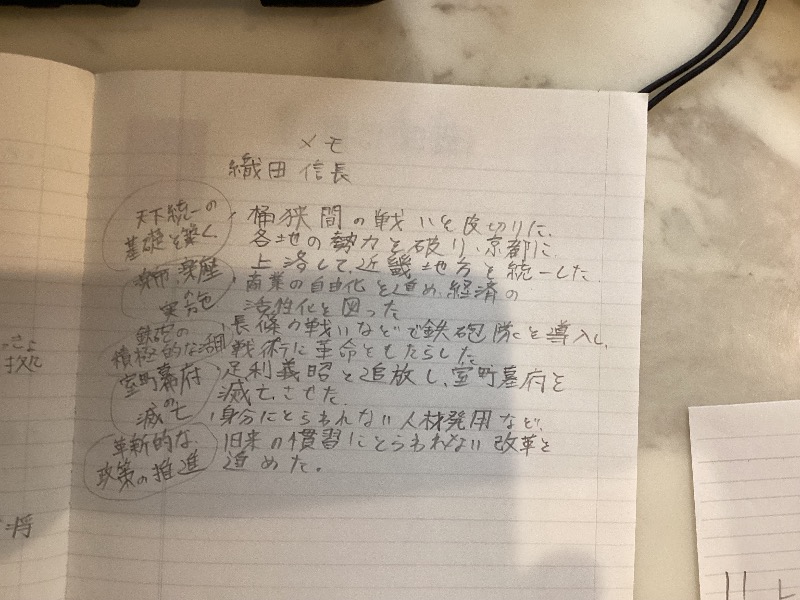 メモ
織田 信長
天下統一の
基礎を築く
・桶狭間の戦いを皮切りに、
各地の勢力を破り、京都に
上洛して、近畿地方を統一した。
楽市、楽座
の
実施
商業の自由化を進め、経済の
活性化を図った
鉄砲の
積極的な活用
・長篠の戦いなどで鉄砲隊を導入し、
戦術に革命をもたらした
室町幕府
の
滅亡
・足利義昭を追放し、室町幕府を
滅亡させた
革新的な
政策の推進
・身分にとらわれない人材発用など、
旧来の慣習にとらわれない改革を
進めた。
将